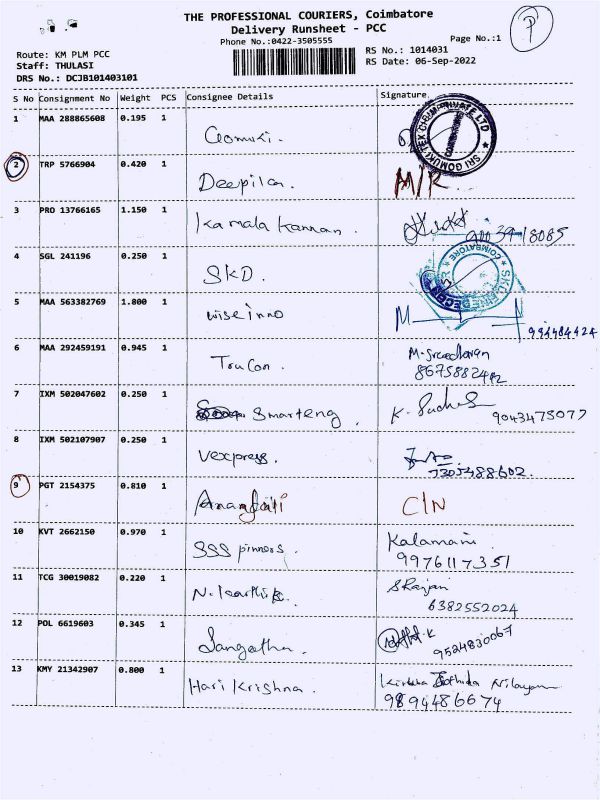 THE PROFESSIONAL COURIERS, Coimbatore
Delivery Runsheet - PCC
Phone No.:0422-3505555
Page No.:1
P
Route: KM PLM PCC
RS No.: 1014031
Staff: THULASI
RS Date: 06-Sep-2022
DRS No.: DCJB101403101
S No Consignment No Weight PCS Consignee Details Signature
1 MAA 288865608 0.195 1 Gomuki.
SRI GOMUKI TEX CHEM PRIVATE LTD
2 TRP 5766904 0.420 1 Deepika. N/R
3 PRO 13766165 1.150 1 Kamala Kannan.
4 SGL 241196 0.250 1 SKD.
COIMBATORE
5 MAA 563382769 1.800 1 wiseinno
994484424
6 MAA 292459191 0.945 1 Trucon. M-Sreedharan
8675882482
7 IXM 502047602 0.250 1 Smarteng. K.
9043475077
8 IXM 502107907 0.250 1 Vexpress.
7305488602.
9 PGT 2154375 0.810 1 C/N
10 KVT 2662150 0.970 1 SSS pinners. Kalamani
9976117351
11 TCG 30019082 0.220 1 N. Karthik. S Rajan
6382552024
12 POL 6619603 0.345 1 Sangetha.
9524830067
13 KMY 21342907 0.800 1 Hari Krishna. Nilayam
9894486674